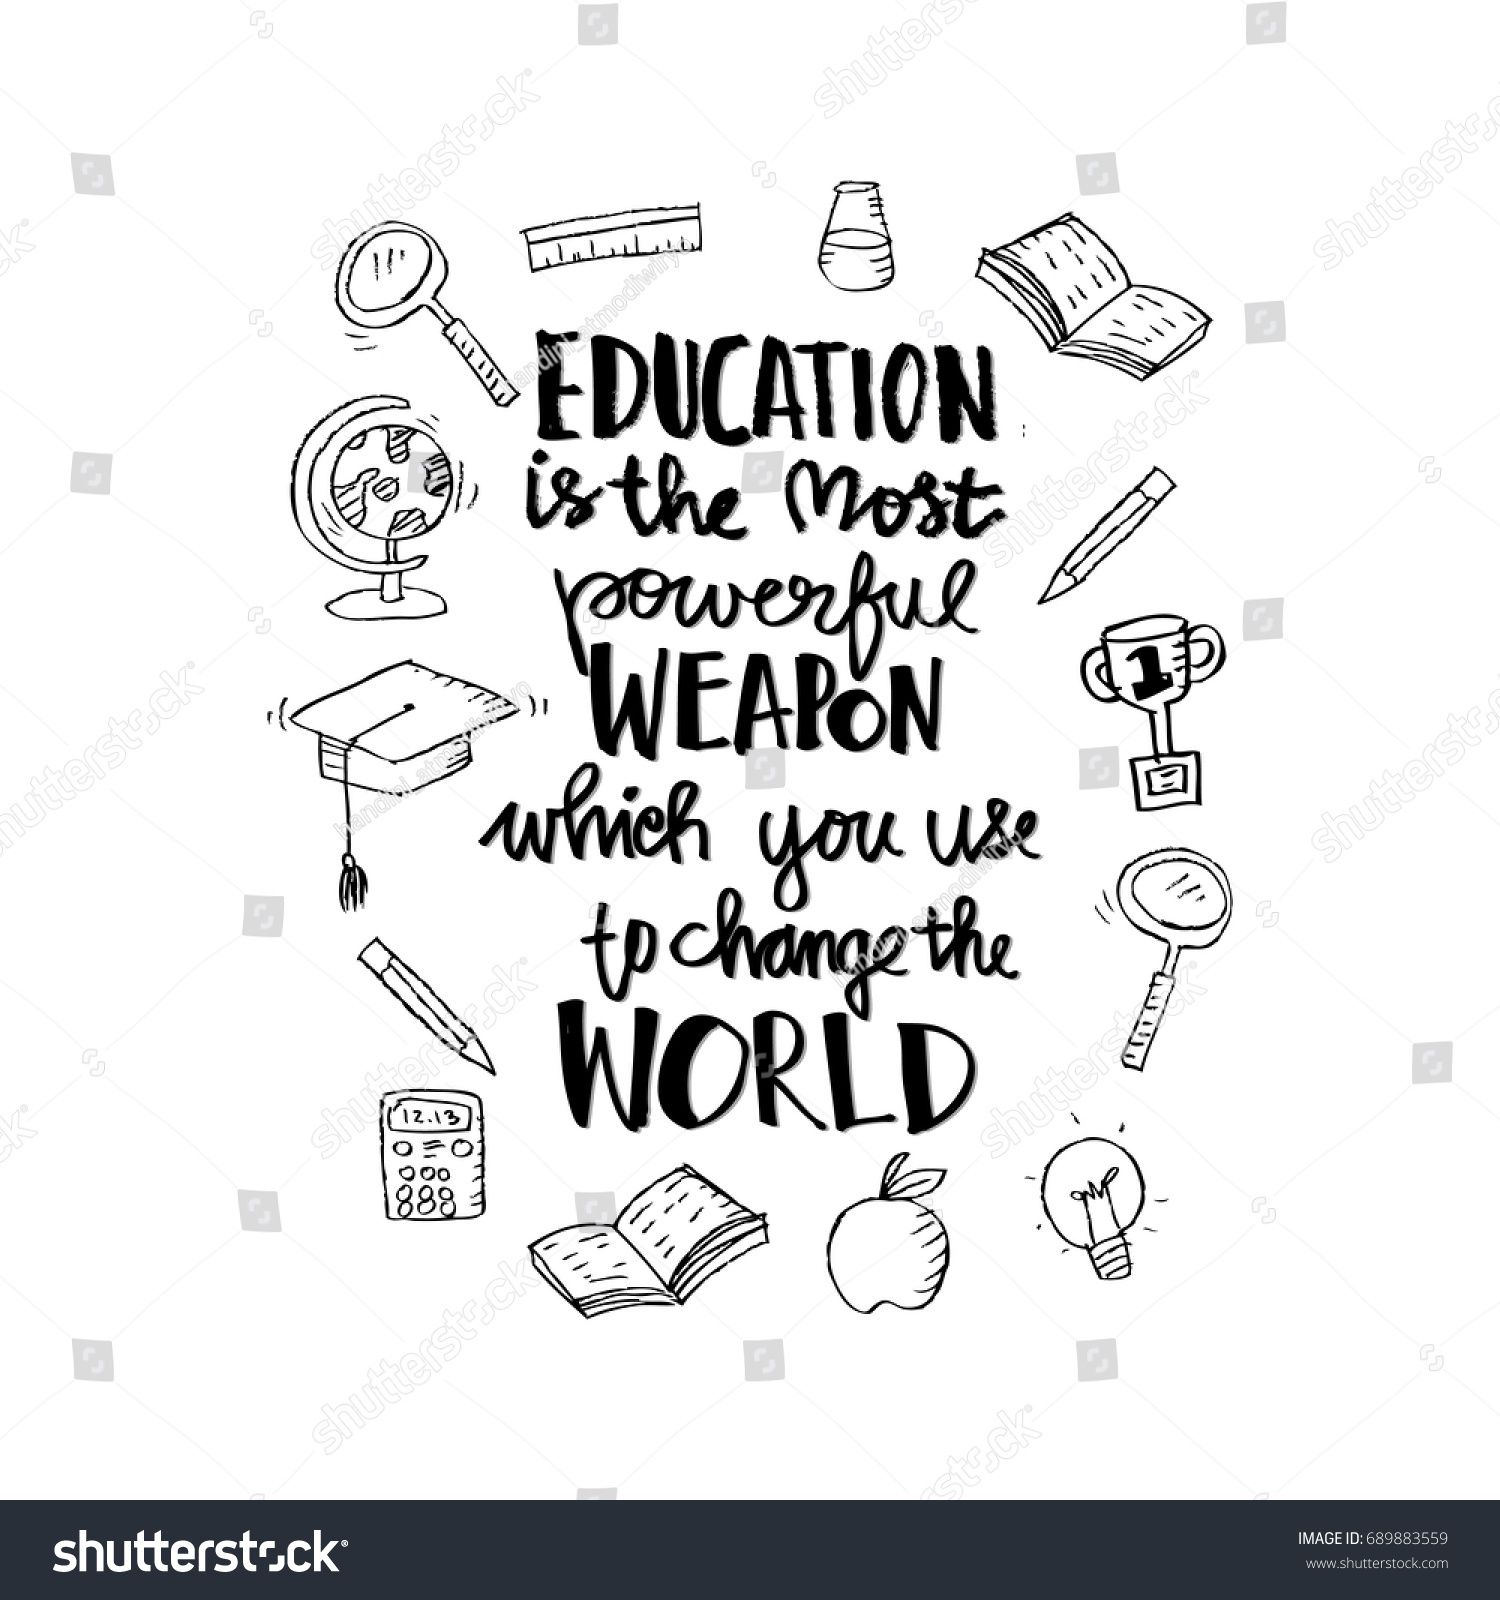 EDUCATION
is the most
powerful
WEAPON
which you use
to change the
WORLD
1
12.13
shutterstock
IMAGE ID: 689883559
www.shutterstock.com